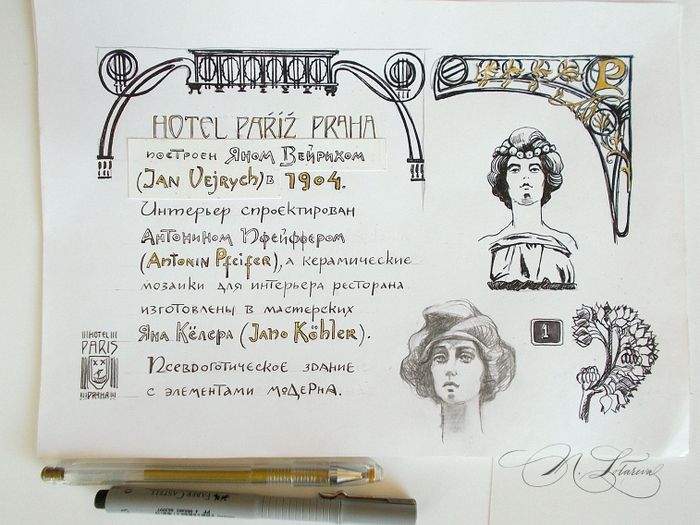 HOTEL PAŘÍŽ PRAHA
построен Яном Вейрихом
(Jan Vejrych) в 1904.
Интерьер спроектирован
Антонином Пфейффером
(Antonin Pfeifer), а керамические
мозаики для интерьера ресторана
изготовлены в мастерских
Яна Кёлера (Jano Köhler).
Псевдоготическое здание
с элементами модерна.
HOTEL
PARIS
PRAHA
P
1
FABER-CASTELL